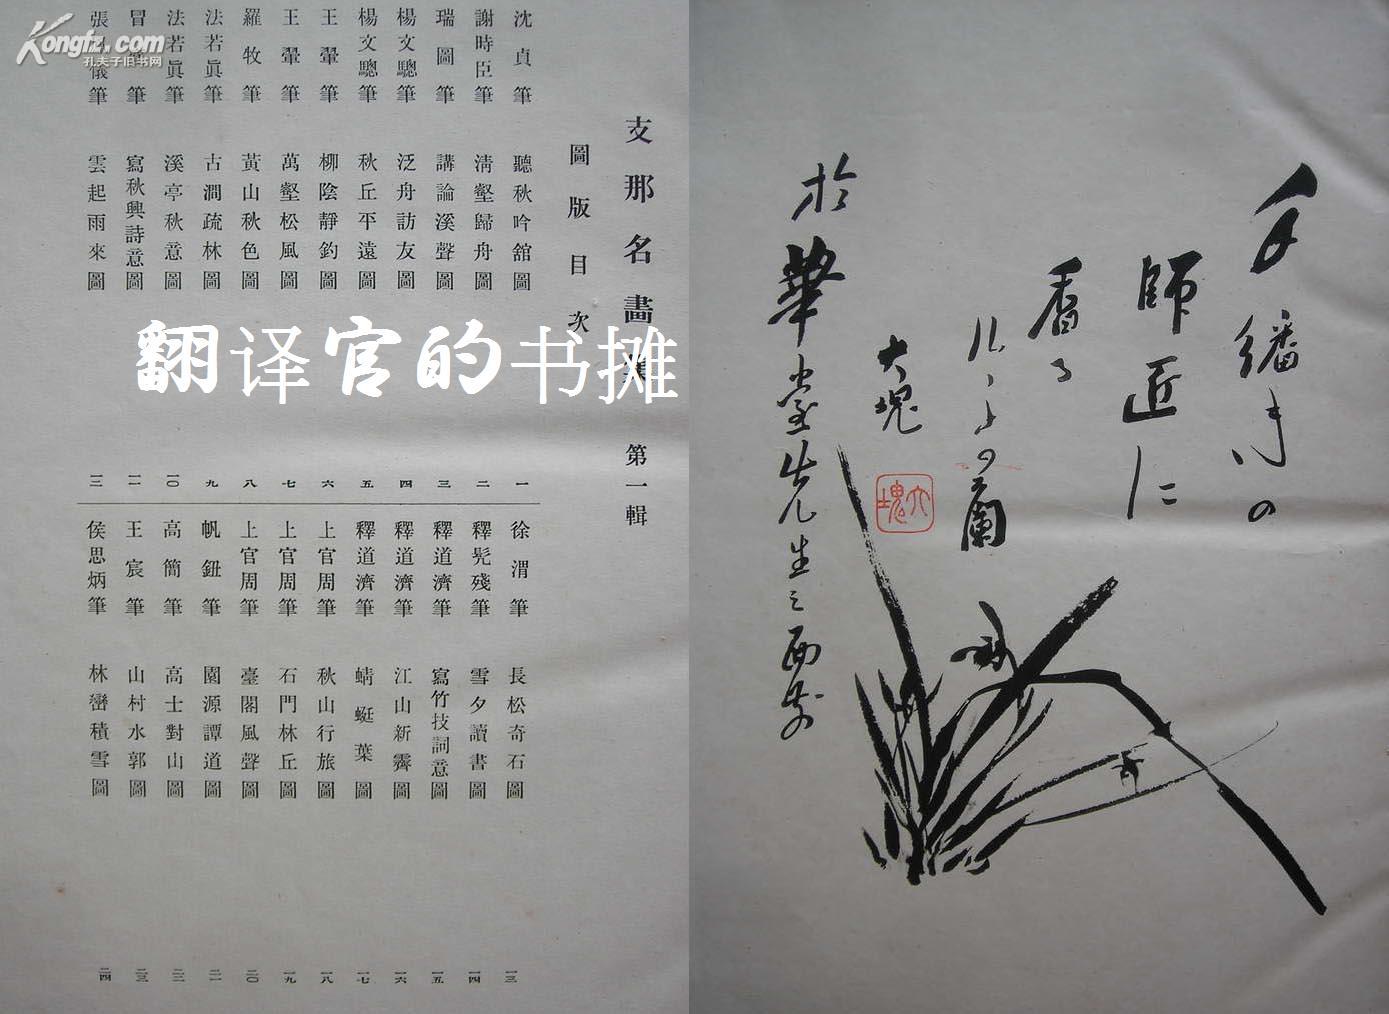 支那名畵集 第一輯
圖版目次
沈貞筆 聽秋吟舘圖 一
謝時臣筆 淸壑歸舟圖 二
瑞圖筆 講論溪聲圖 三
楊文驄筆 泛舟訪友圖 四
楊文驄筆 秋丘平遠圖 五
王翬筆 柳陰靜釣圖 六
王翬筆 萬壑松風圖 七
羅牧筆 黃山秋色圖 八
法若眞筆 古澗疏林圖 九
法若眞筆 溪亭秋意圖 一〇
冒筆 寫秋興詩意圖 一一
張儀筆 雲起雨來圖 一二
徐渭筆 長松奇石圖 一三
釋髡殘筆 雪夕讀書圖 一四
釋道濟筆 寫竹技詞意圖 一五
釋道濟筆 江山新霽圖 一六
釋道濟筆 蜻蜓葉圖 一七
上官周筆 秋山行旅圖 一八
上官周筆 石門林丘圖 一九
上官周筆 臺閣風聲圖 二〇
帆鈕筆 園源譚道圖 二一
高簡筆 高士對山圖 二二
王宸筆 山村水郭圖 二三
侯思炳筆 林巒積雪圖 二四
Kongfz.com
孔夫子旧书网
翻译官的书摊
師匠に
香る
蘭
大塊
於華堂先生之西
大塊